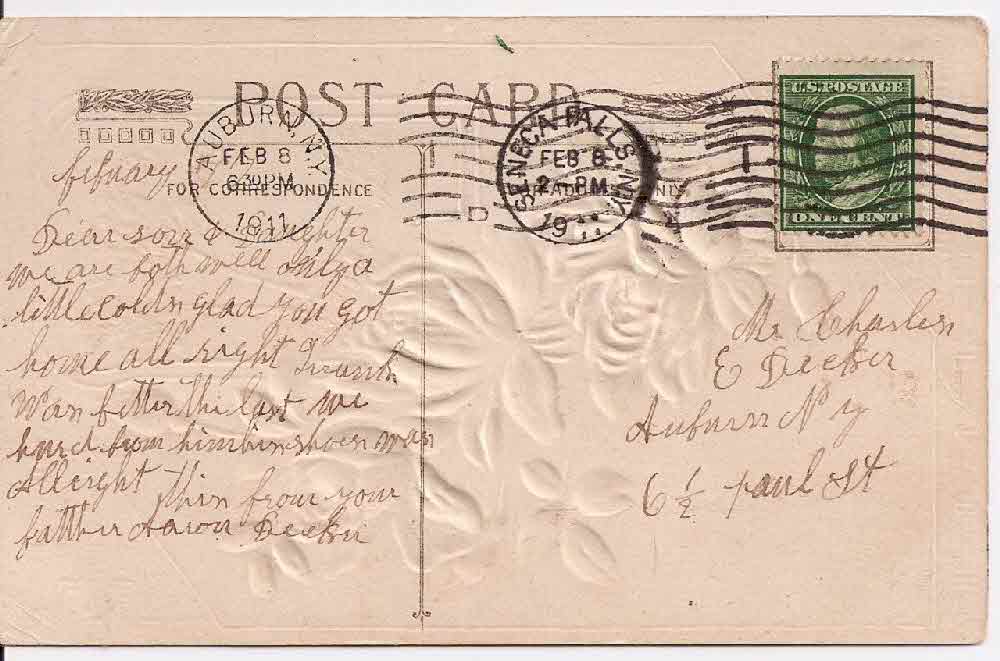 POST CARD
U.S. POSTAGE
ONE CENT
AUBURN, N.Y.
FEB 8
630 PM
1911
SENECA FALLS, N.Y.
FEB 8
2 PM
1911
FOR CORRESPONDENCE
febuary
Dear son & Daughter
we are both well only a
little colds glad you got
home all right Frank
was better the last we
heard from him him shoes was
Allright this from your
father Aaron Decker
Mr Charles
E Decker
Auburn N y
6 ½ paul St